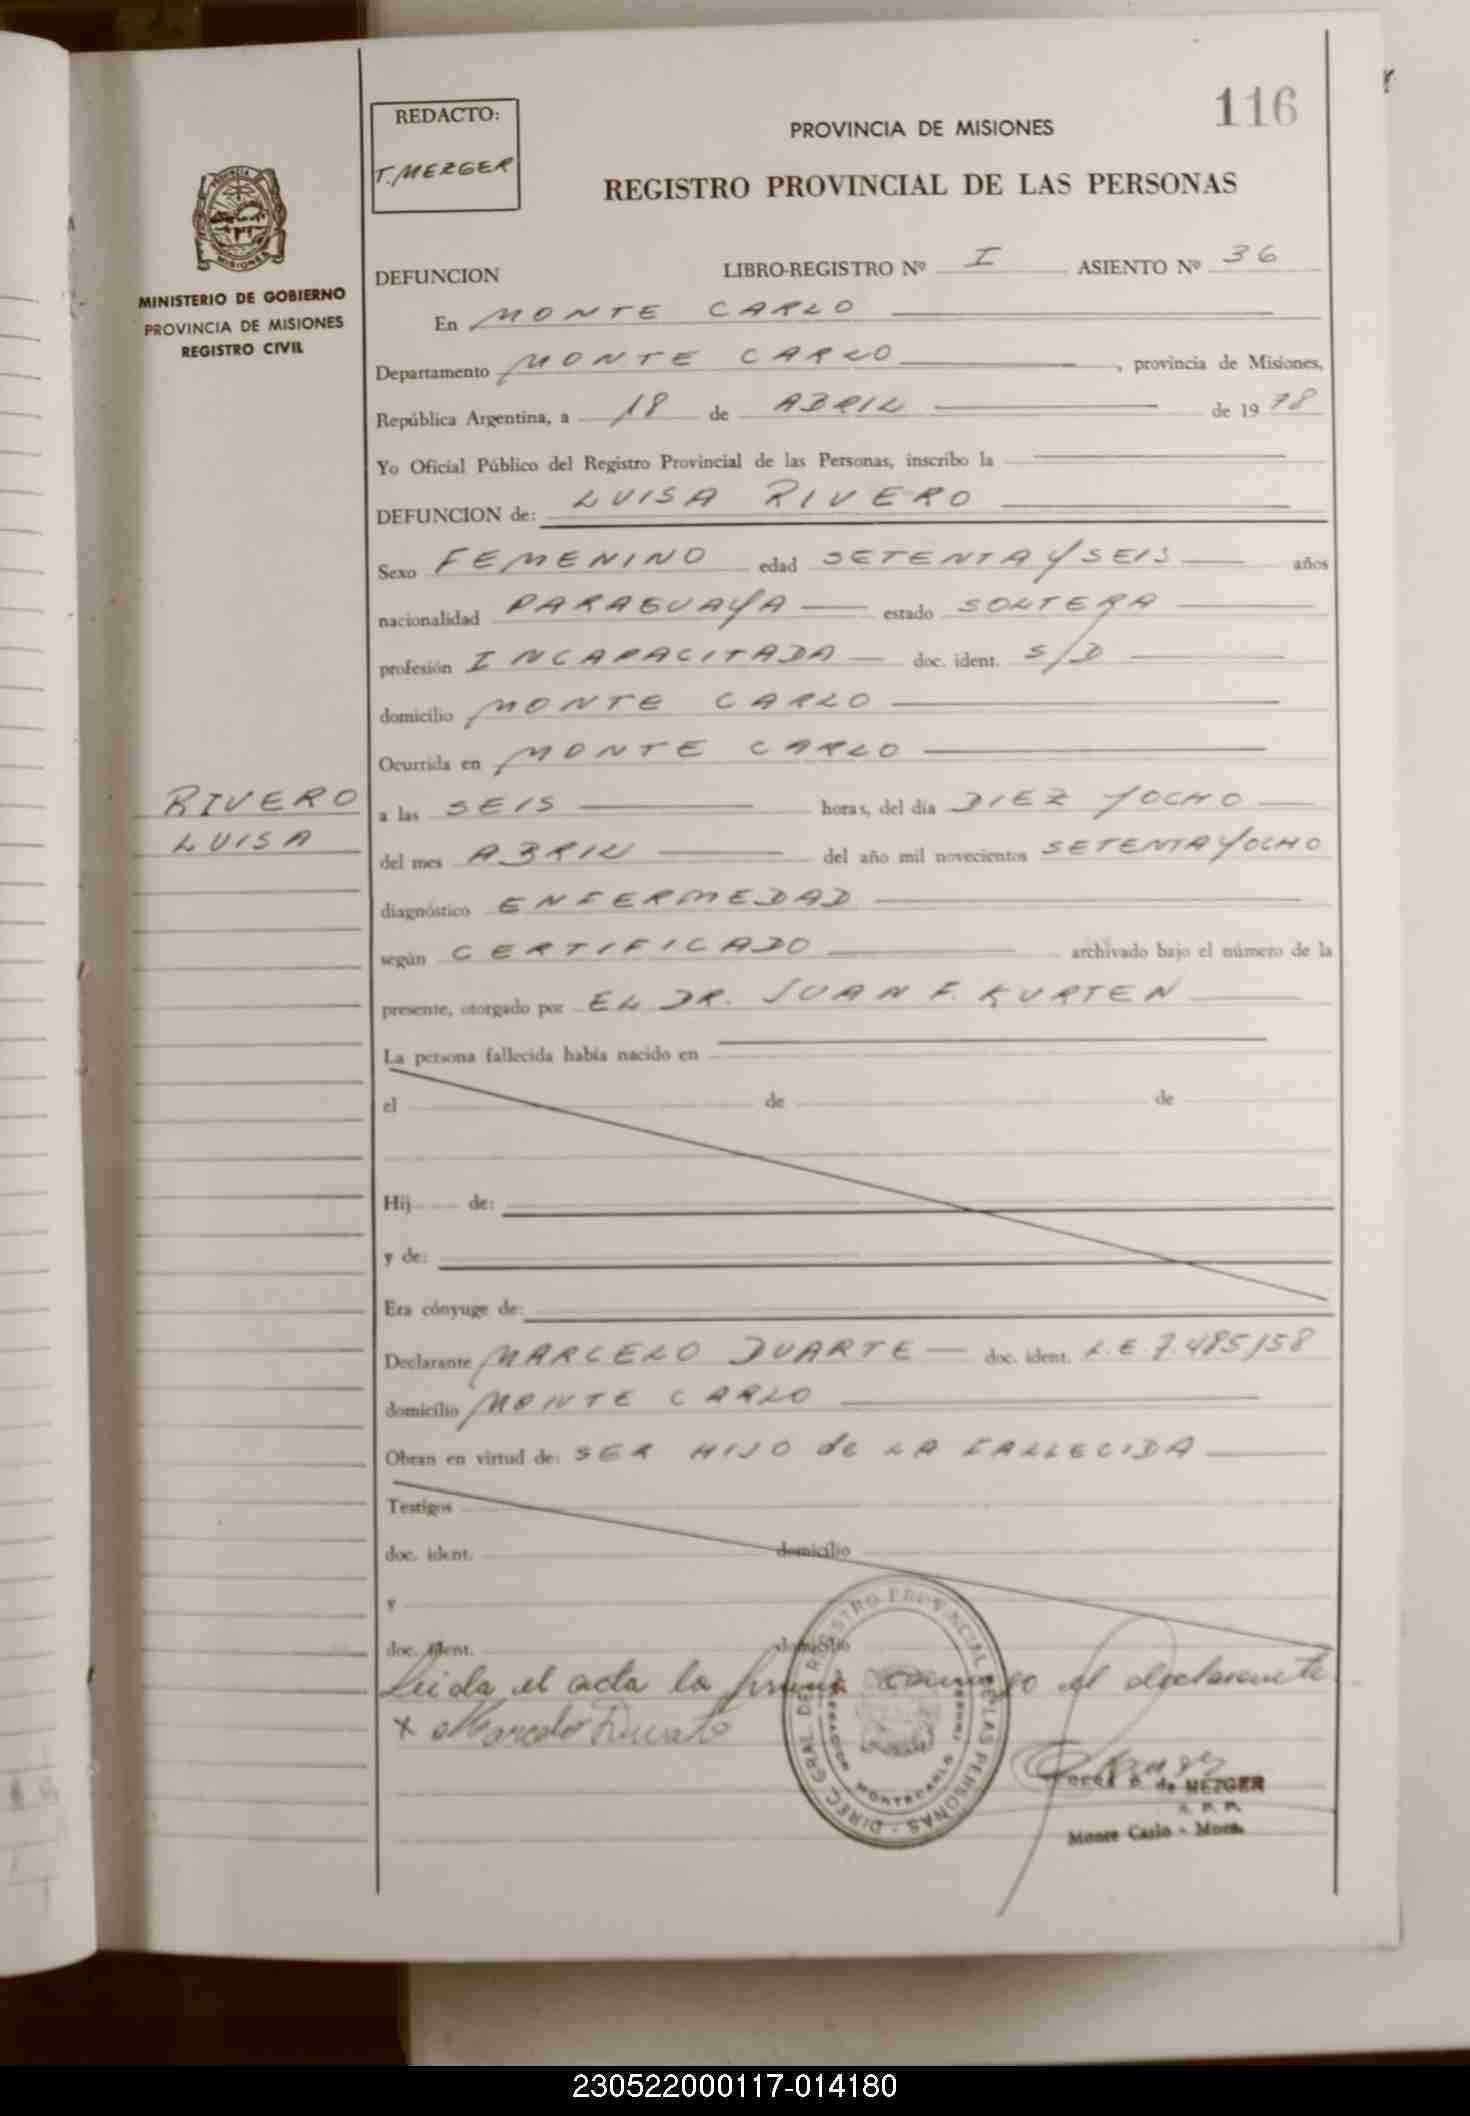 116
REDACTO:
T. MEZGER
PROVINCIA DE MISIONES
REGISTRO PROVINCIAL DE LAS PERSONAS
MINISTERIO DE GOBIERNO
PROVINCIA DE MISIONES
REGISTRO CIVIL
DEFUNCION LIBRO-REGISTRO Nº I ASIENTO Nº 36
En MONTE CARLO
Departamento MONTE CARLO, provincia de Misiones,
República Argentina, a 18 de ABRIL de 1978
Yo Oficial Público del Registro Provincial de las Personas, inscribo la
DEFUNCION de: LUISA RIVERO
Sexo FEMENINO edad SETENTA Y SEIS años
nacionalidad PARAGUAYA estado SOLTERA
profesión INCAPACITADA doc. ident. S/D
domicilio MONTE CARLO
Ocurrida en MONTE CARLO
RIVERO
LUISA
a las SEIS horas, del día DIEZ YOCHO
del mes ABRIL del año mil novecientos SETENTA YOCHO
diagnóstico ENFERMEDAD
según CERTIFICADO archivado bajo el número de la
presente, otorgado por EL DR. JUAN F. KURTEN
La persona fallecida había nacido en
el de de
Hij de:
y de:
Era cónyuge de:
Declarante MARCELO DUARTE doc. ident. L.E. 7.485,158
domicilio MONTE CARLO
Obran en virtud de: SER HIJO de LA FALLECIDA
Testigos
doc. ident. domicilio
y
doc. ident. domicilio
Leida el acta la firma conmigo el declarante
x Marcelo Duarte
DIREC. GRAL. DEL REGISTRO PROVINCIAL DE LAS PERSONAS
MONTECARLO
de MEZGER
Monte Carlo - Mnes.
230522000117-014180